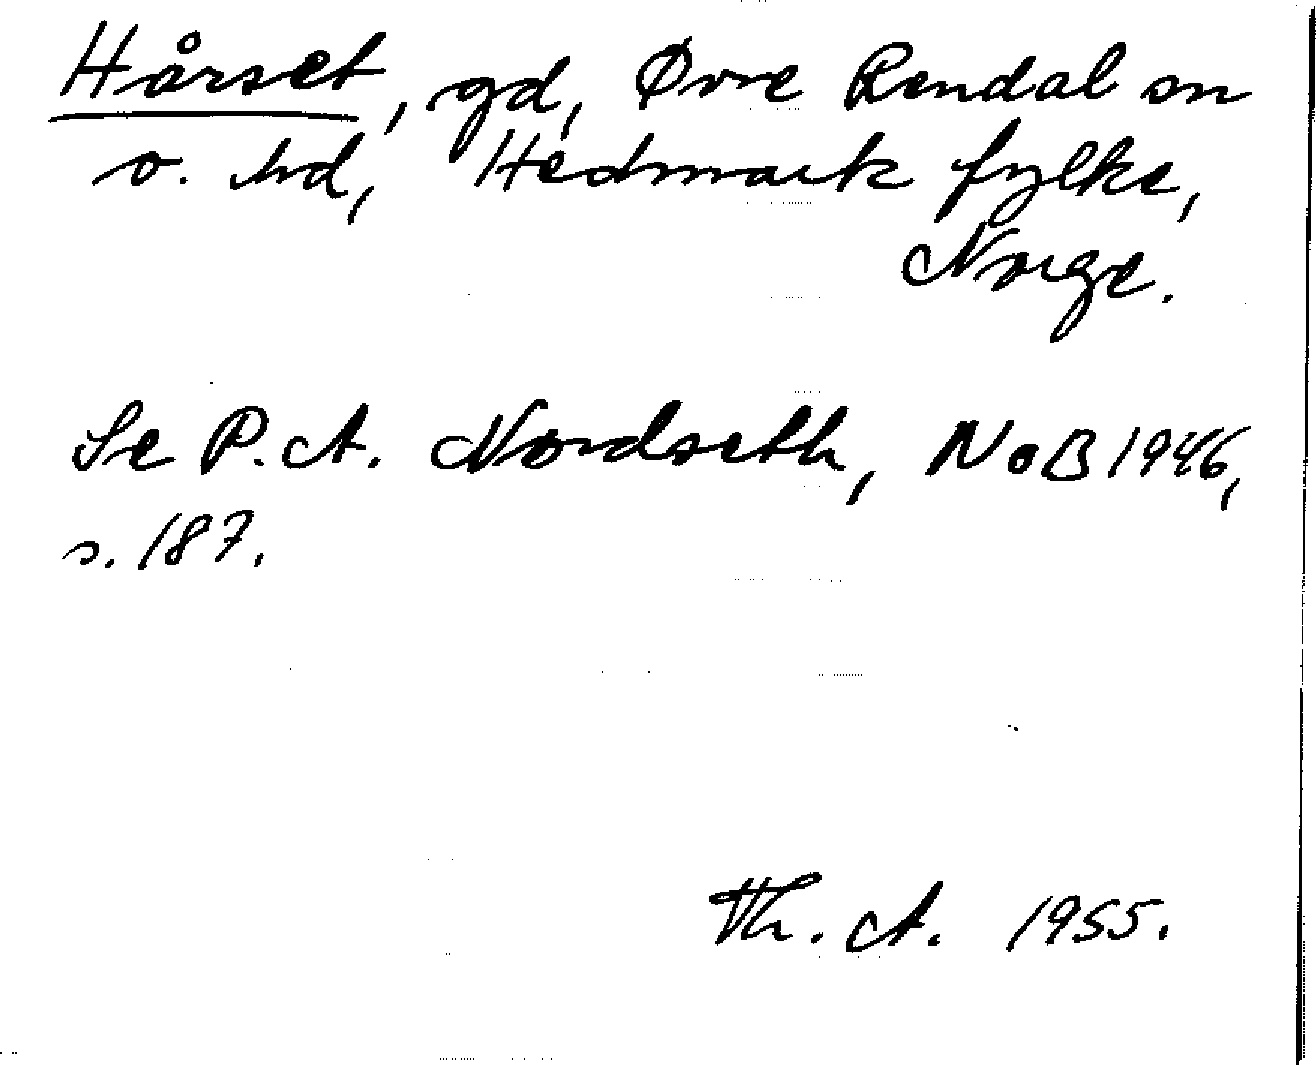 Hårset, gd, Øvre Rendal sn
o. hd, Hedmark fylke,
Norge.
Se P. A. Nordseth, NoB 1946,
s. 187.
Th. A. 1955.